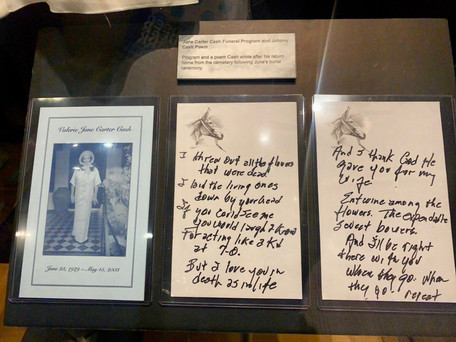 June Carter Cash Funeral Program and Johnny
Cash Poem
Program and a poem Cash wrote after his return
home from the cemetery following June's burial
ceremony.
Valerie June Carter Cash
June 23, 1929 – May 15, 2003
I threw out all the flowers
that were dead
I laid the living ones
down by your head
If you could see me
you would laugh
For acting like a Kid
at 70.
But I love you in
death as in life
And I thank God He
gave you for my
wife
Entwine among the
flowers. The expendable
bowers.
And I'll be right
there with you
When they go. When
they go - repeat